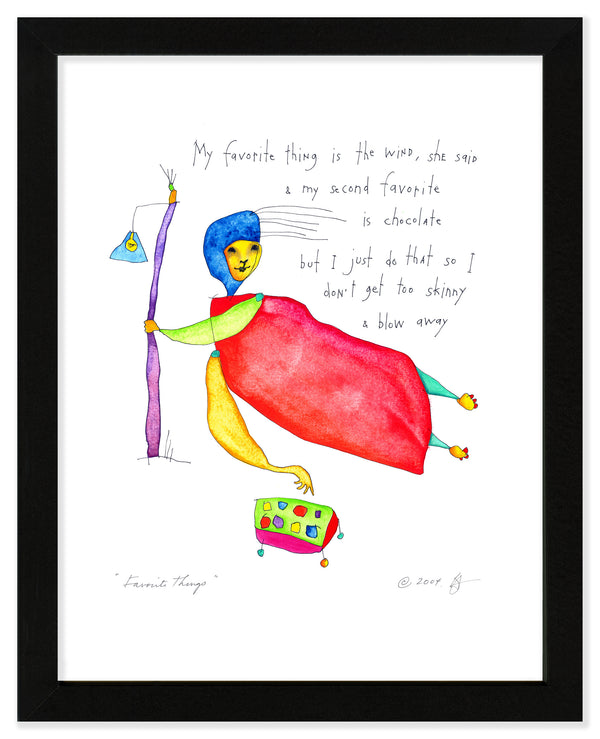 My favorite thing is the wind, she said
& my second favorite
is chocolate
but I just do that so I
don't get too skinny
& blow away
"Favorite Things"
© 2004.